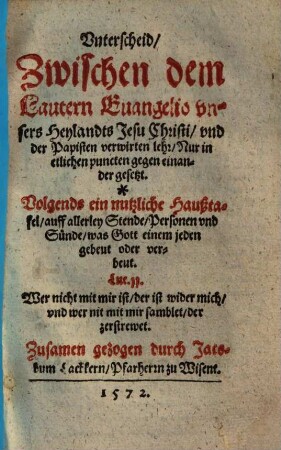 Vnterscheid/
Zwischen dem
Lautern Euangelio vn-
sers Heylandts Jesu Christi/ vnd
der Papisten verwirten lehr/ Nur in
etlichen puncten gegen einan-
der gesetzt.
*
Volgends ein nutzliche Haußta-
fel/ auff allerley Stende/ Personen vnd
Sünde/ was Gott einem jeden
gebeut oder ver-
beut.
Luc. 11.
Wer nicht mit mir ist/ der ist wider mich/
vnd wer nit mit mir samblet/ der
zerstrewet.
Zusamen gezogen durch Jacs-
bum Lackkern/ Pfarherrn zu Wisent.
1572.